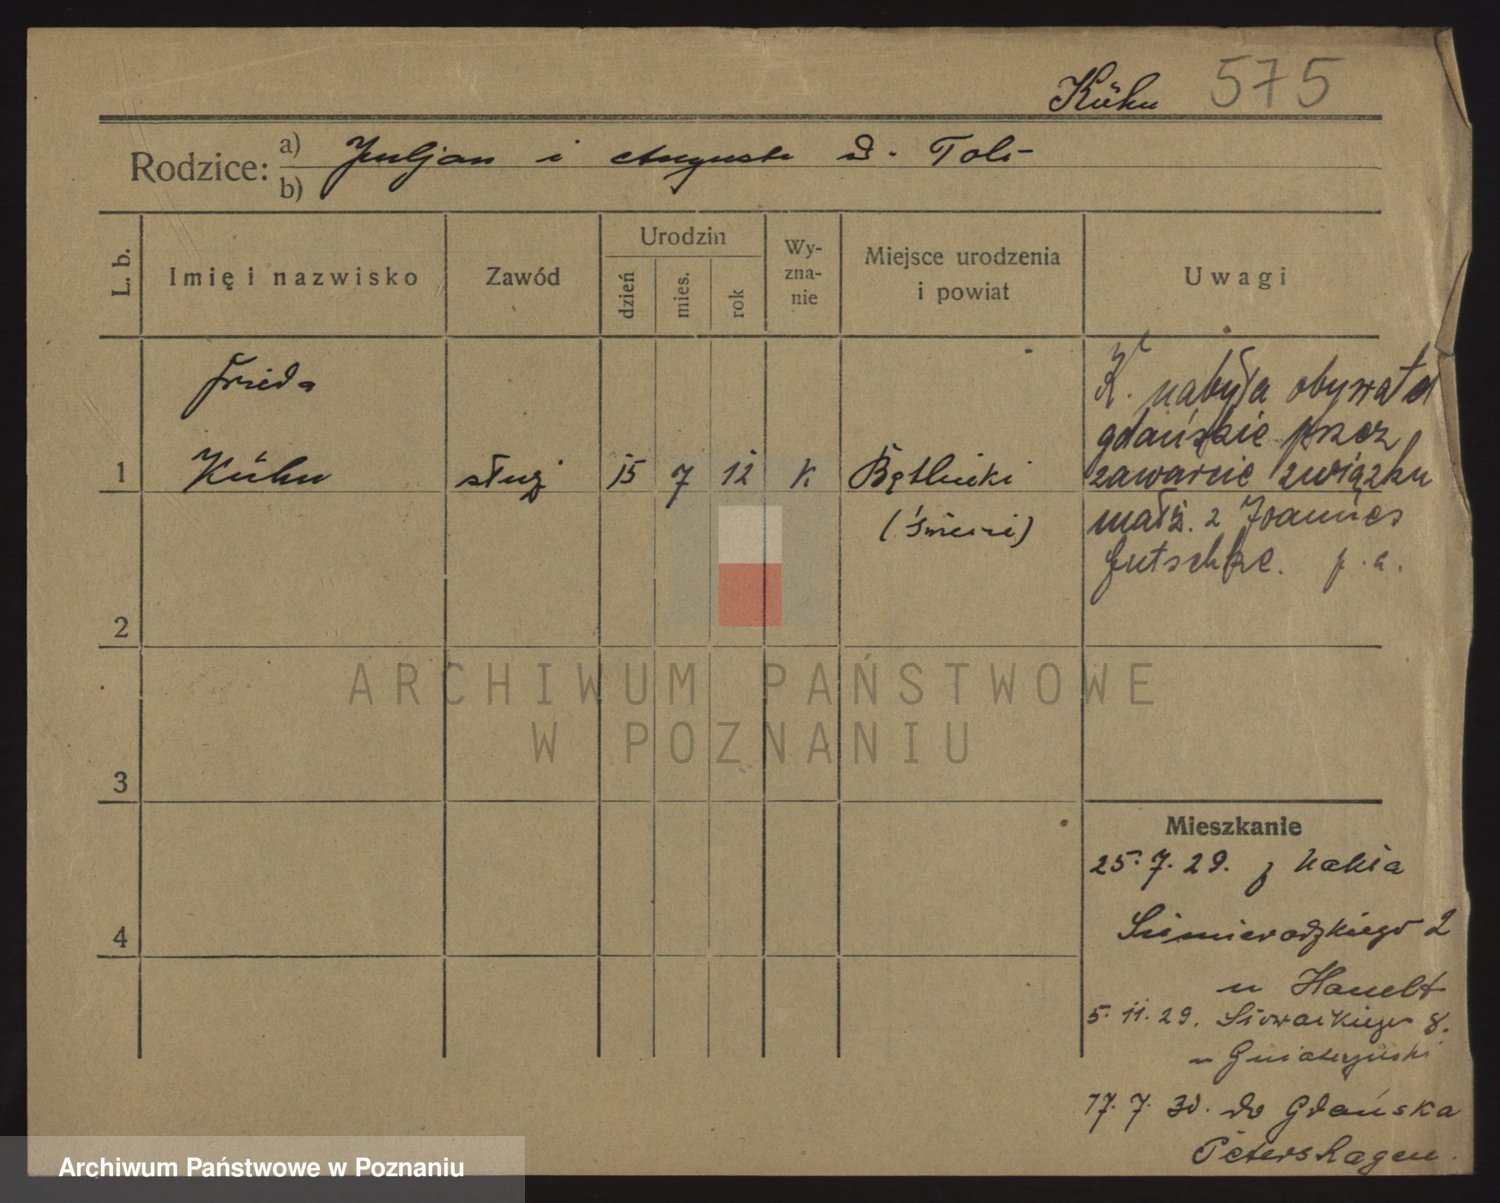 Kühn 575
Rodzice:
a) Juljan i Auguste d.
b)
L. b.
Imię i nazwisko
Zawód
Urodzin
dzień
mies.
rok
Wy-
zna-
nie
Miejsce urodzenia
i powiat
Uwagi
Frieda
1 Kühn służ 15 7 12 k
K. nabyła obywatel
gdańskie przez
zawarcie związku
małż. z Joannes
Gutschke. p. a.
2
3
4
Mieszkanie
25. 7. 29. z Nakła
Sienieradzkiego 2
u Hanelt
5. 11. 29. Słowackiego 8.
u
17. 7. 30. do Gdańska
Petershagen.
ARCHIWUM PAŃSTWOWE
W POZNANIU
Archiwum Państwowe w Poznaniu